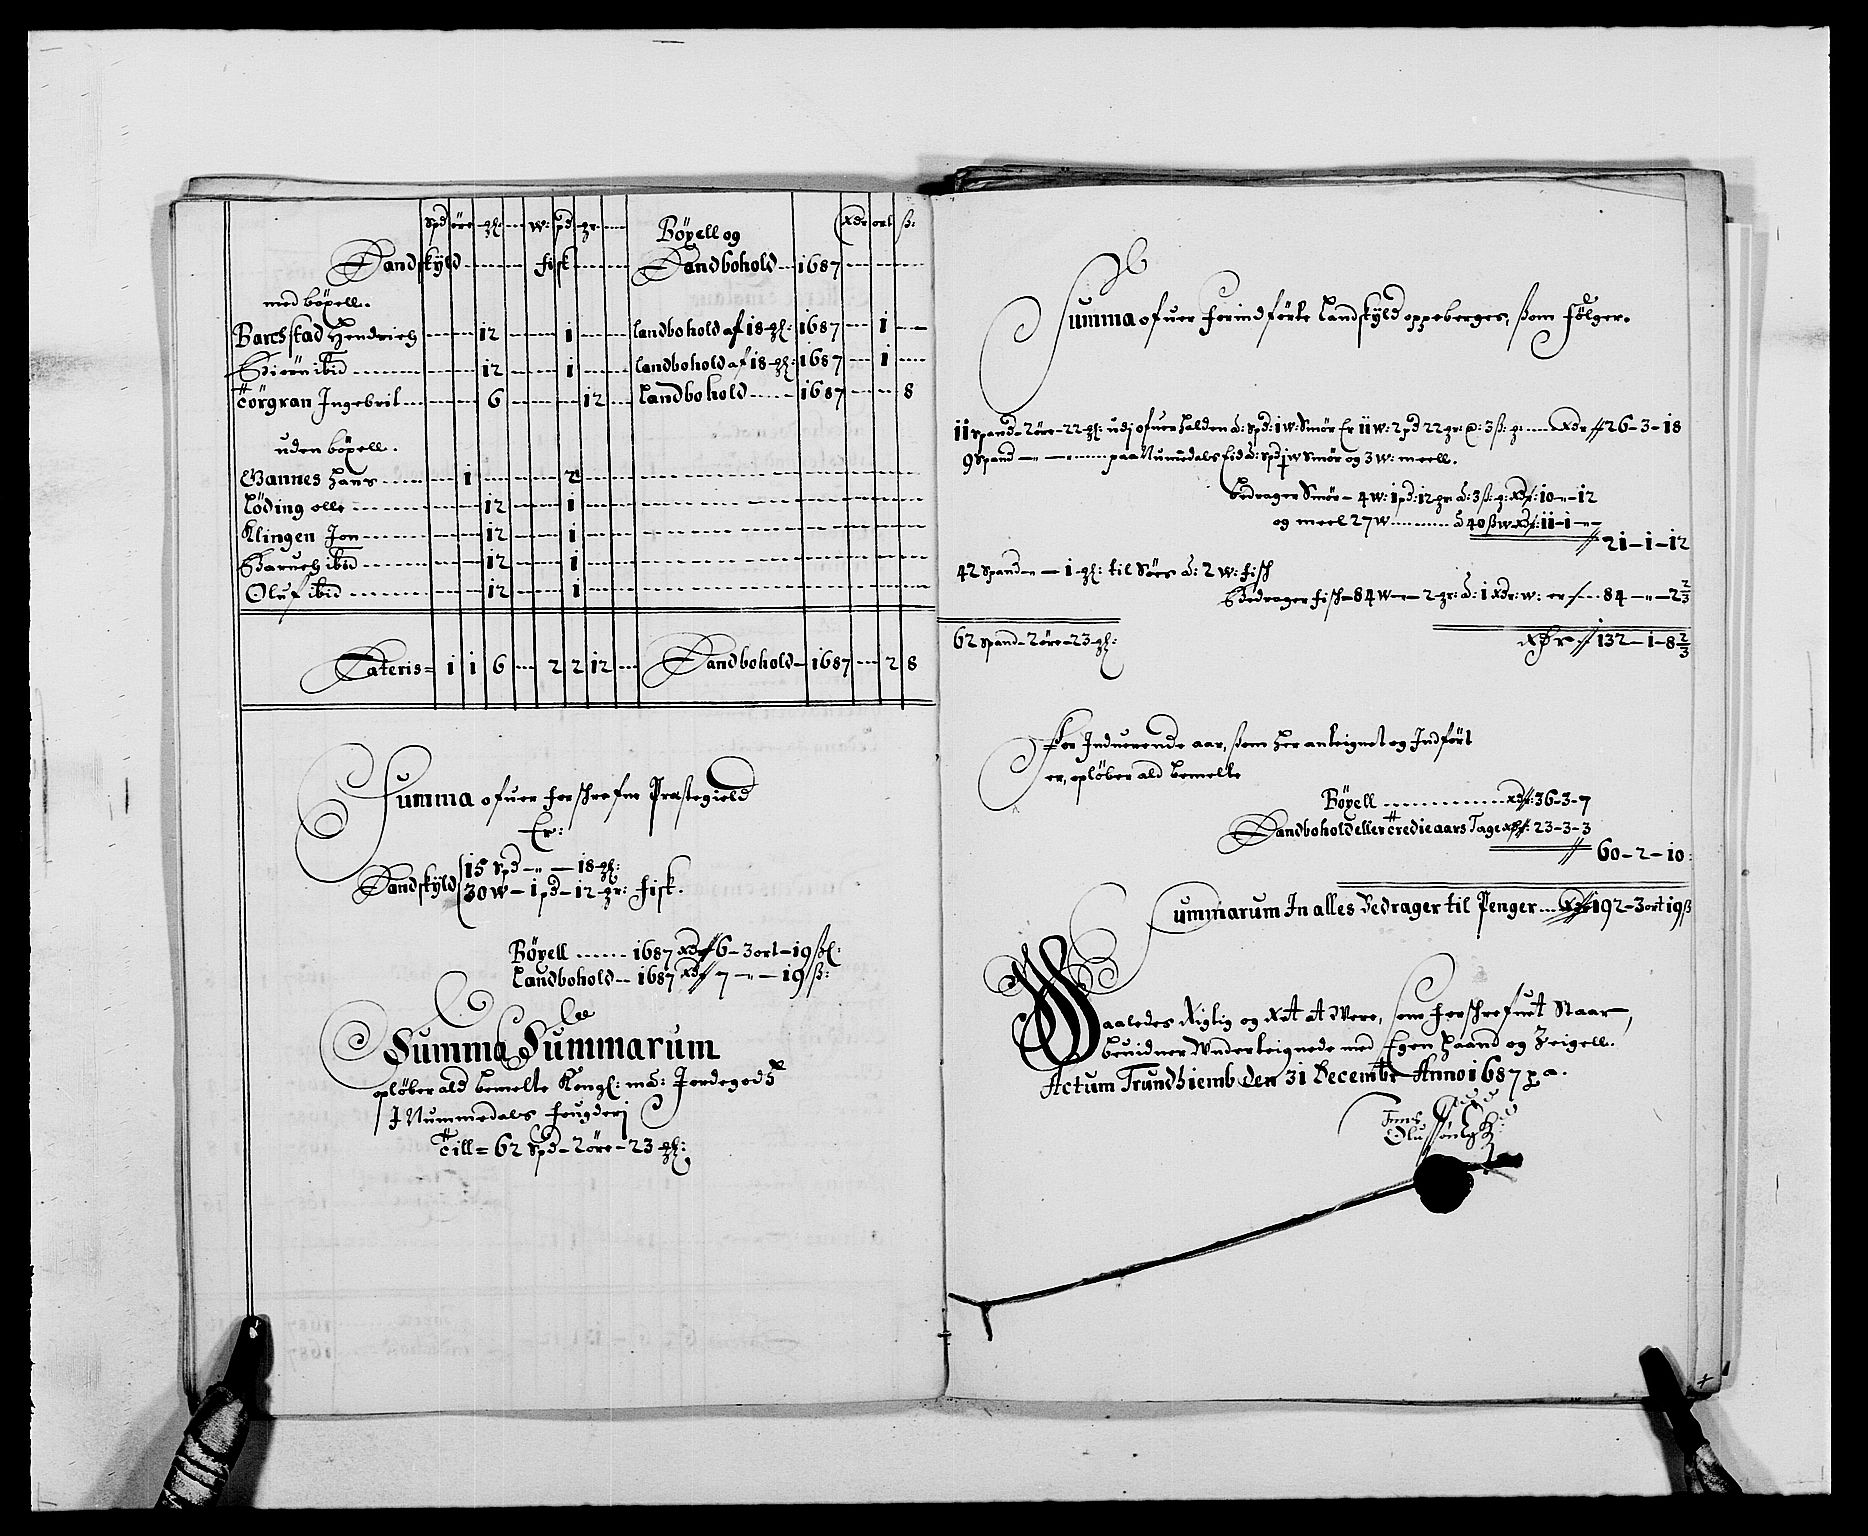 Spd öre gl: w: pd gr. Böxell og Rdr ort ß:
Landskyld fisk Landbohold 1687
med böxell.
Barchstad Hendrich 12 1 landbohold af 18 gl: 1687 1
Biörn ibid 12 1 landbohold af 18 gl: 1687 1
Törgran Ingebrit 6 12 Landbohold 1687 8
uden böxell.
Wannes Hans 1 2
Löding olle 12 1
Klingen Jon 12 1
Baruch ibid 12 1
Oluf ibid 12 1
Lateris = 1 1 6 2 2 12 Landbohold 1687 2 8
Summa ofuer forschrefne Præstegield
Er:
Landskyld 15 Spd - „ - 18 gl:
30 w - 1 pd - 12 gr: fisk.
Böxell 1687 Rdr 6 - 3 ort - 19 ßl:
Landbohold 1687 Rdr 7 - „ - 19 ß:
Summa Summarum
opløber ald bemelte Kongl: mã: Jordegodß
I Nummedals fougderi
Till = 62 Spd - 2 öre - 23 gl:
Summa ofuer forindförte Landskyld oppeberges, ßom følger.
11 Spand - 2 öre - 22 gl: udj ofuer halden â: Spd: 1 w: Smör Er 11 w: 2 pd 22 gr: â: 3 ß: gr: Rdr 26 - 3 - 18
9 Spand - „ - paa Numedals Eid â: Spd 1 w Smör og 3 w: meell.
bedrager Smör - 4 w: 1 pd: 12 gr: â: 3 ß: gr: Rdr: 10 - „ - 12
og meel 27 w â 40 ß w Rdr: 11 - 1 - „ -
21 - 1 - 12
42 Spand - „ - 1 gl: til Söes â: 2 w: fisch
Bedrager fisch - 84 w - „ - 2 gr: â: 1 Rdr: w: er 84 - „ - 2 2/3
62 Spand - 2 öre - 23 gl: Rdr 132 - 1 - 8 2/3
For Induerende aar, ßom her anteignet og Indfört
er, opløber ald bemelte
Böxell Rdr: 36 - 3 - 7
Landbohold eller Tredie aars Tage Rdr: 23 - 3 - 3
60 - 2 - 10:
Summarum In alles bedrager til Penger Rdr 192 - 3 ort 19 ß
Waaledes Rigtig og Ret at Were, som forschrefuet Staar,
beuidner Underteignede med Egen Haand og Zeigell.
Actum Trundhiemb den 31 Decembr Anno 1687